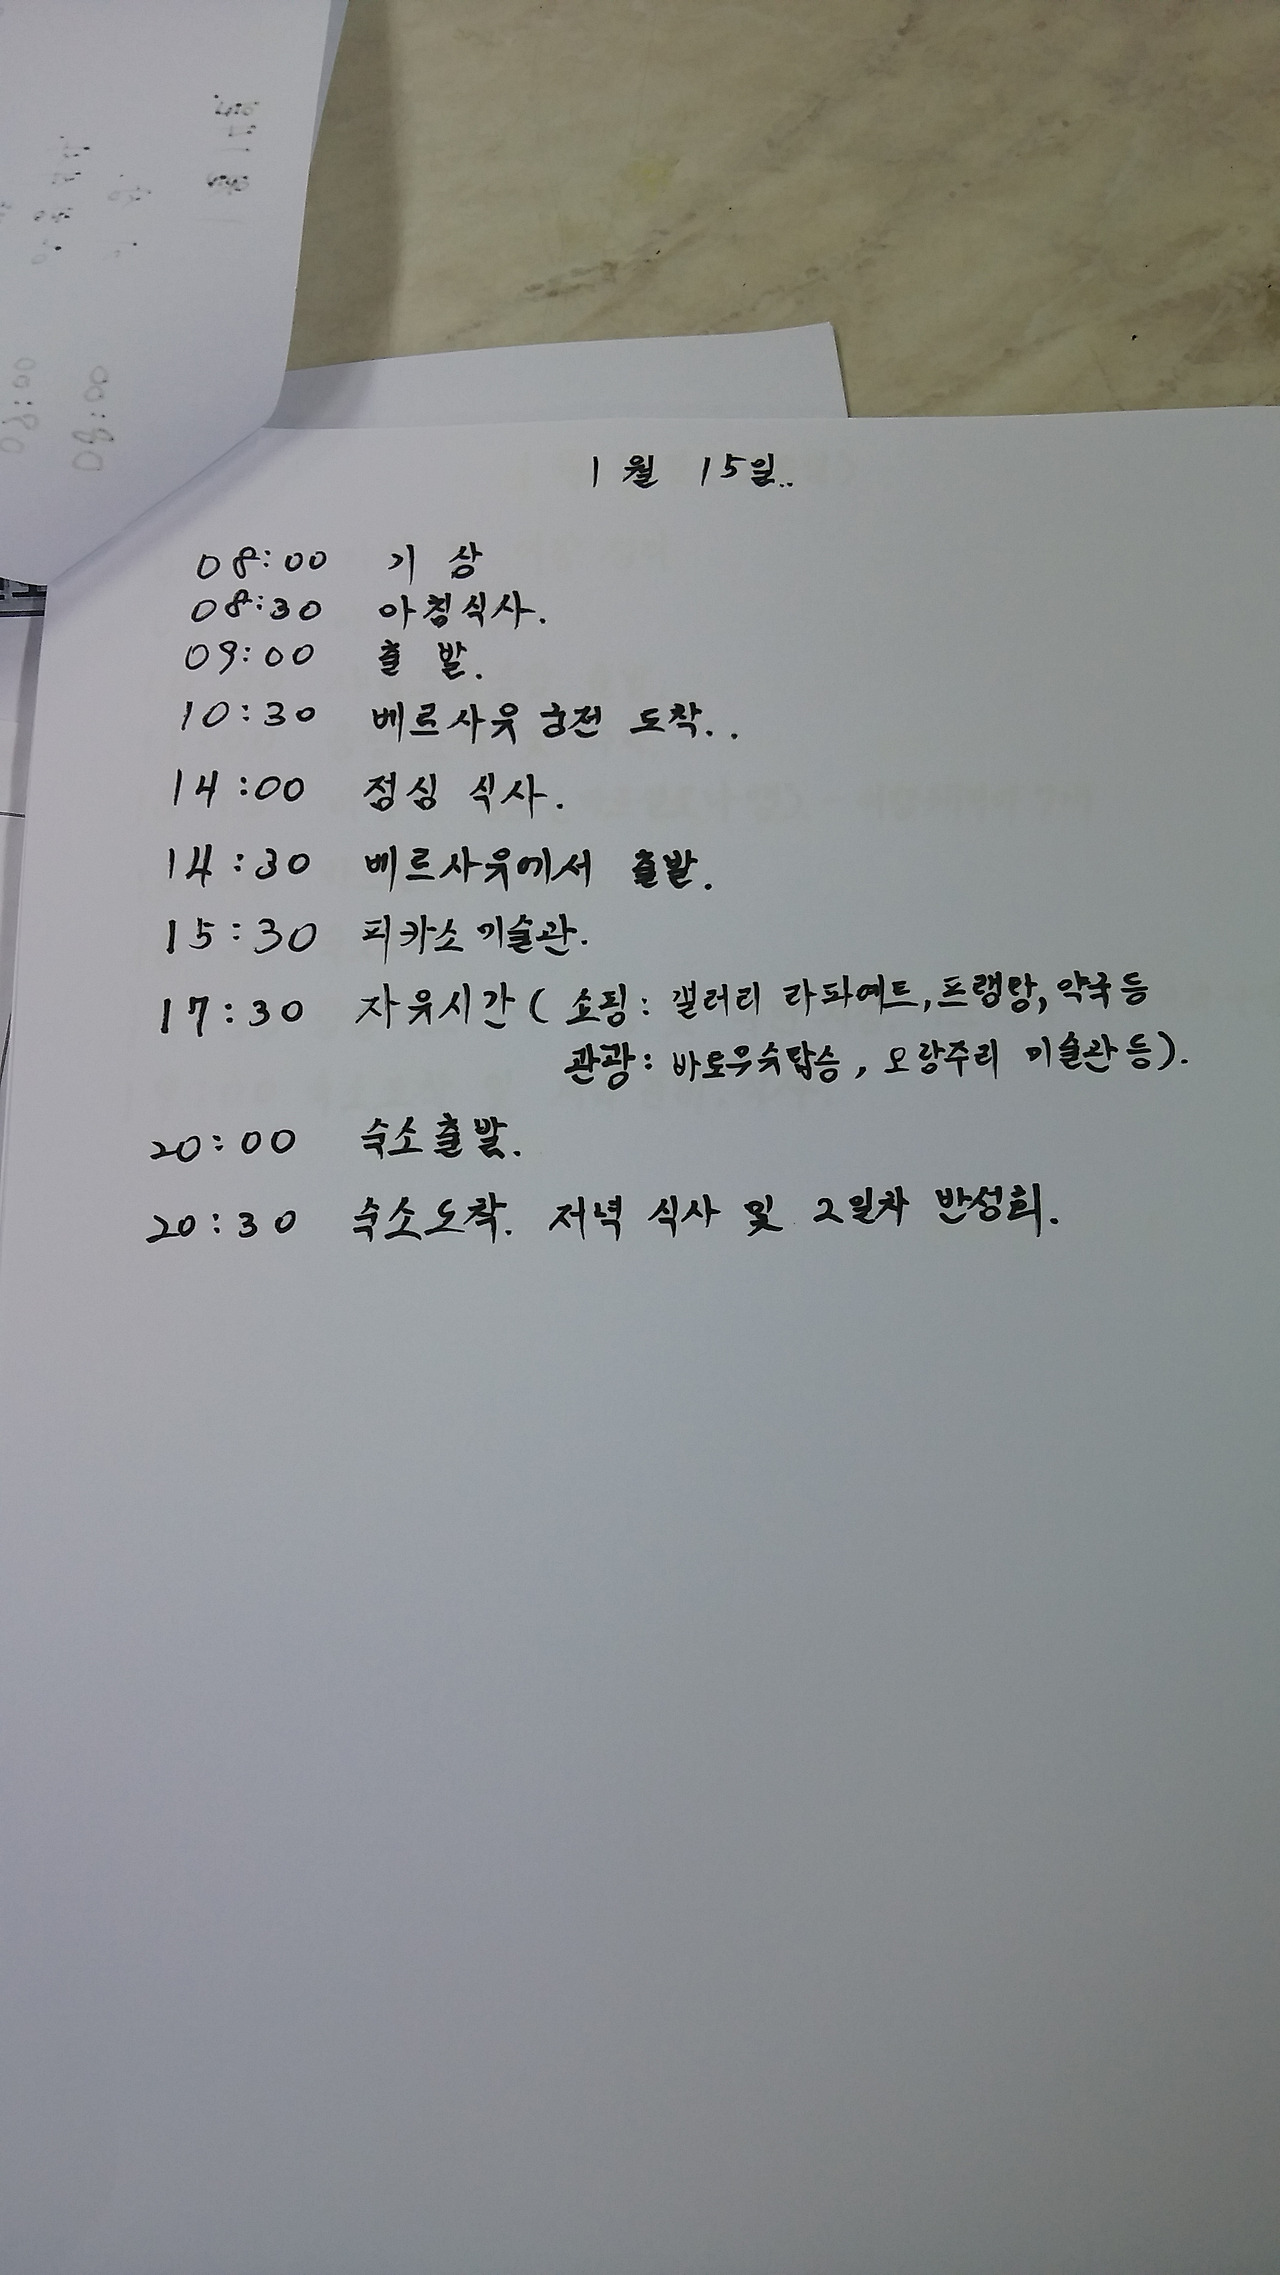 1월 15일..
08:00 기상
08:30 아침식사.
09:00 출발.
10:30 베르사유 궁전 도착..
14:00 점심 식사.
14:30 베르사유에서 출발.
15:30 피카소 미술관.
17:30 자유시간 ( 쇼핑: 갤러리 라파예트, 프랭땅, 약국 등
관광: 바토무슈탑승, 오랑주리 미술관 등).
20:00 숙소출발.
20:30 숙소도착. 저녁 식사 및 2일차 반성회.